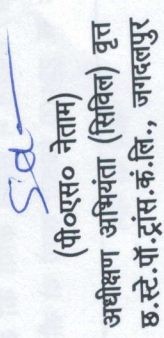 Sd-
(पी०एस० नेताम)
अधीक्षण अभियंता (सिविल) वृत्त
छ.स्टे.पॉ.ट्रांस.कं.लि., जगदलपुर